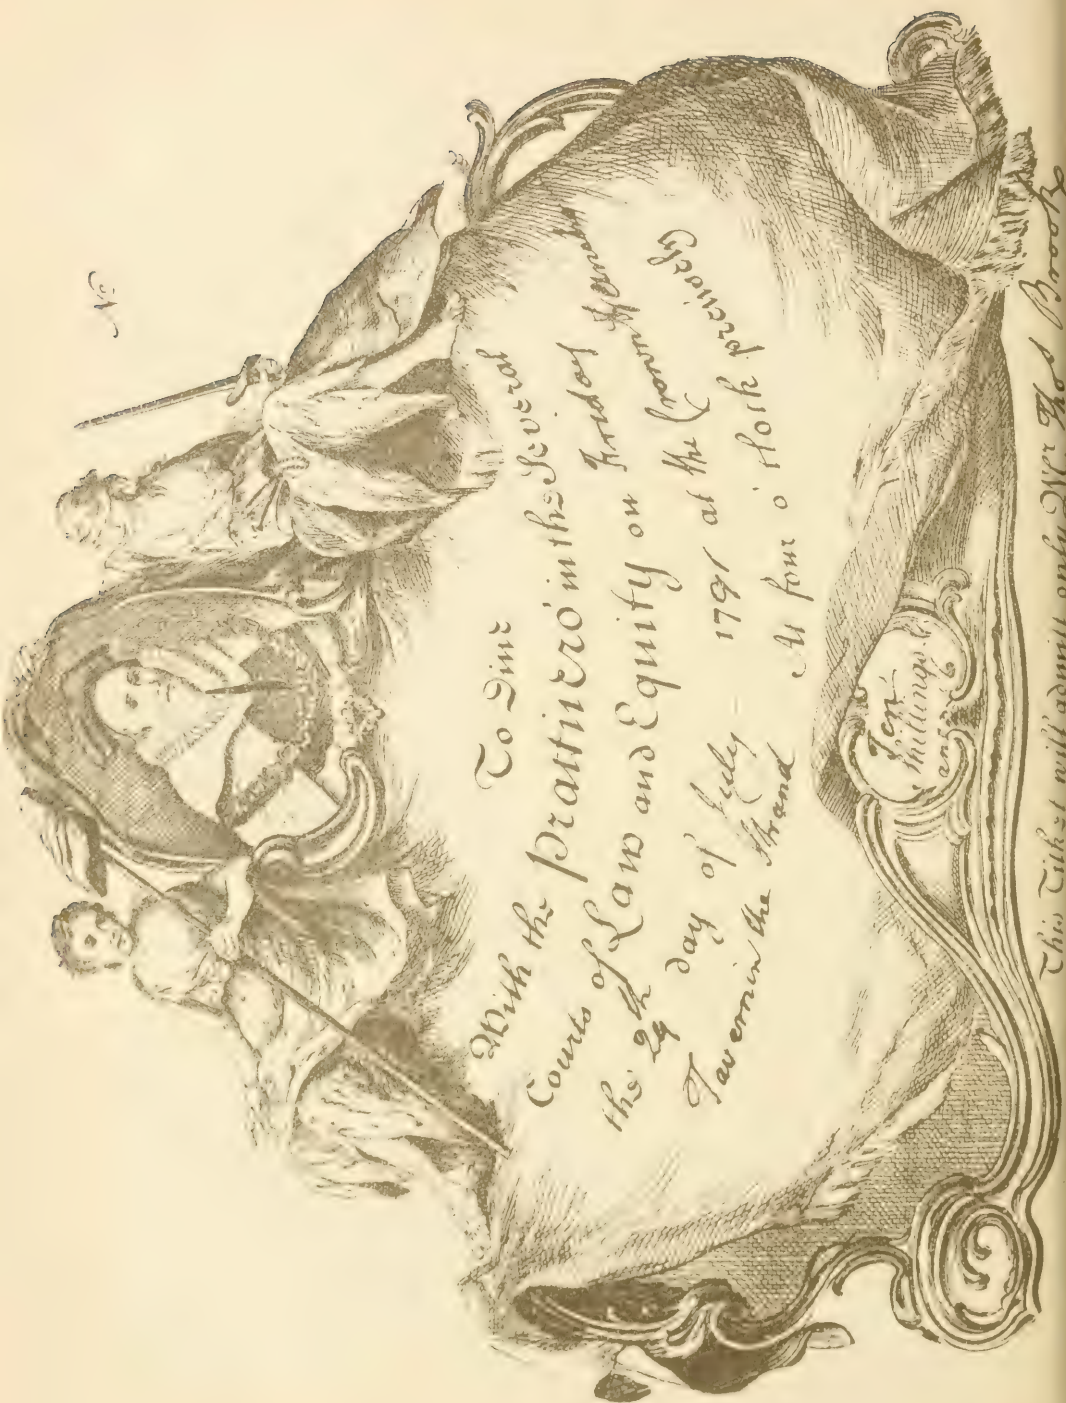 N
To Dine
With the Practicers in the Several
Courts of Law and Equity on Friday
the 29th day of July 1791 at the Crown &
Tavern in the Strand At four o'Clock precisely
Ten
Shillings
This Ticket will admit only Mr Thos Brooks